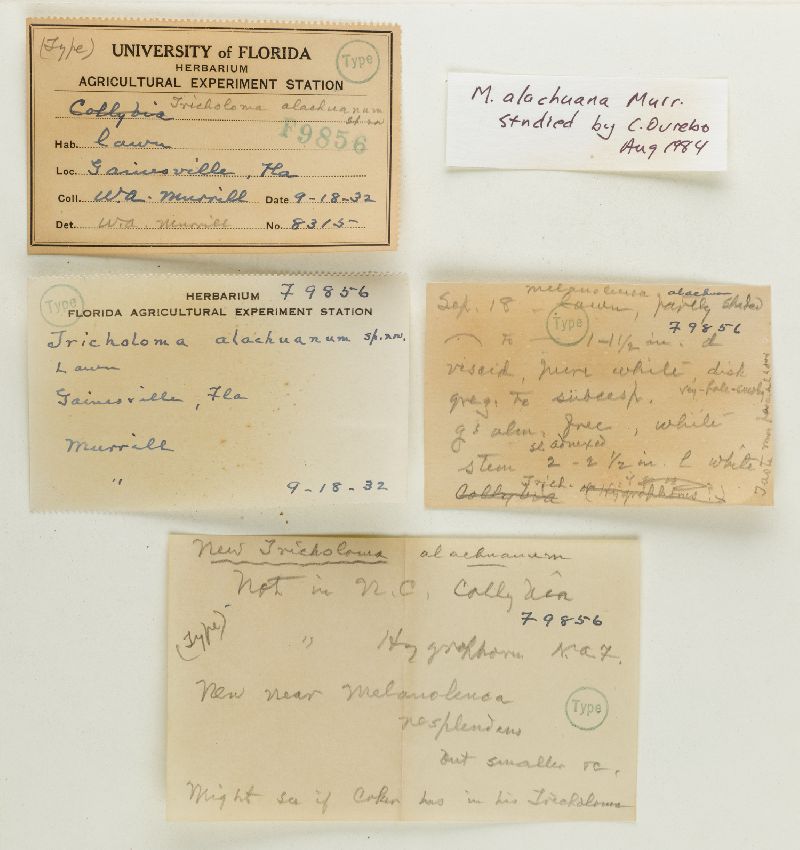 (Type)
UNIVERSITY of FLORIDA
Type
HERBARIUM
AGRICULTURAL EXPERIMENT STATION
Collybia Tricholoma alachuanum
sp. nov
F9856
Hab. Lawn
Loc. Gainesville, Fla
Coll. W.A. Murrill Date 9-18-32
Det. W.A. Murrill No. 8315
M. alachuana Murr.
studied by C. Ovrebo
Aug 1984
Type
HERBARIUM F9856
FLORIDA AGRICULTURAL EXPERIMENT STATION
Tricholoma alachuanum sp. nov.
Lawn
Gainesville, Fla
Murrill
"
9-18-32
melanoleuca alachuan
Sep. 18 - Lawn, partly shaded
Type
F9856
to 1-1½ in. d
viscid, pure white disk
greg. to subcesp.
g's adn. free, white
sl. adnexed
stem 2-2½ in. l white
Trich.
Collybia (Hygrophorus?)
New Tricholoma alachuanum
Not in N.C. Collybia
F9856
(Type)
" Hygrophorus N.A.F.
New near Melanoleuca
resplendens
Type
but smaller etc.
Might see if Coker has in his Tricholoma